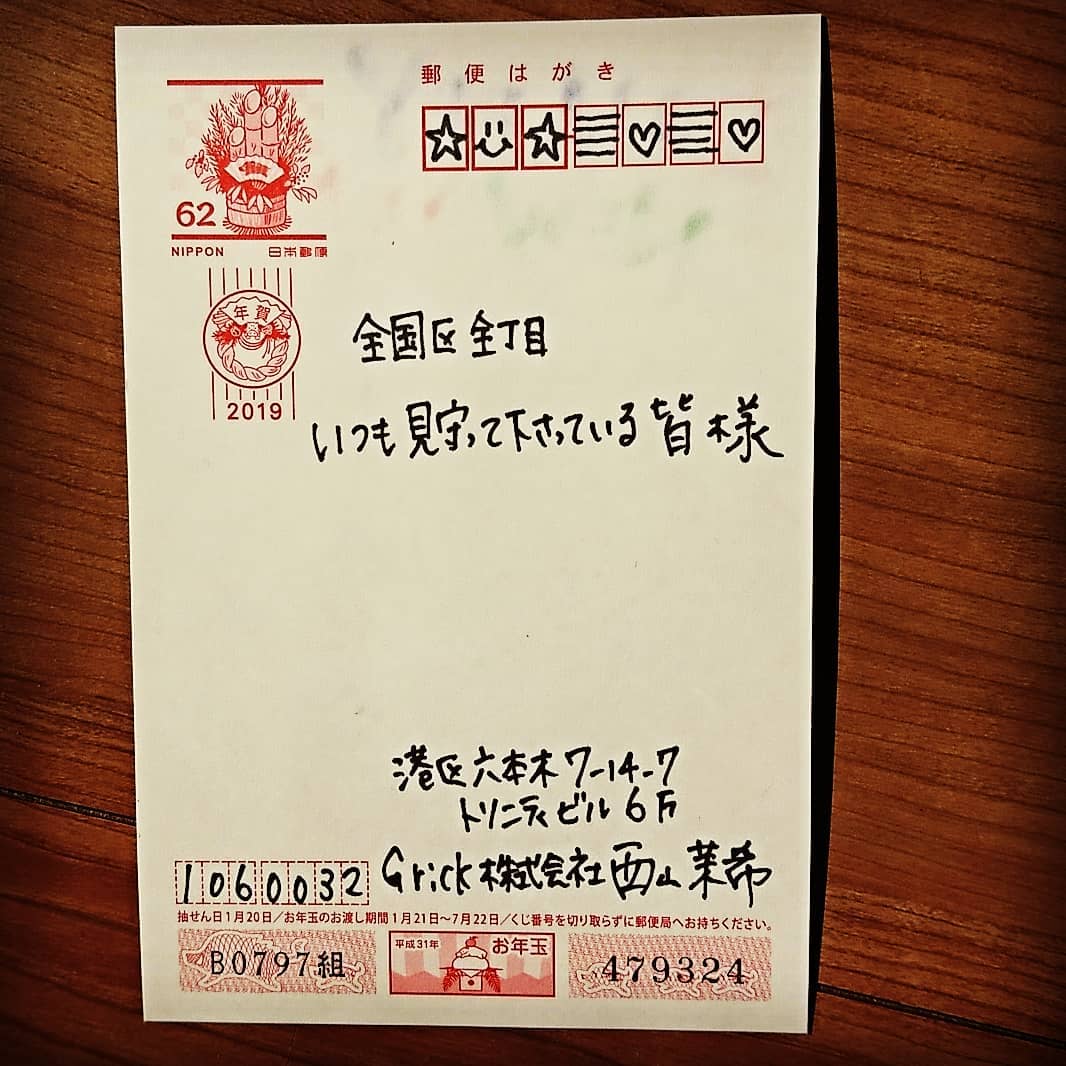 郵便はがき
62
NIPPON 日本郵便
年賀
2019
全国区 全丁目
いつも見守って下さっている皆様
港区六本木7-14-7
トリニティビル 6F
Grick株式会社 西山茉希
1060032
抽せん日1月20日／お年玉のお渡し期間1月21日～7月22日／くじ番号を切り取らずに郵便局へお持ちください。
B0797組
平成31年 お年玉
479324